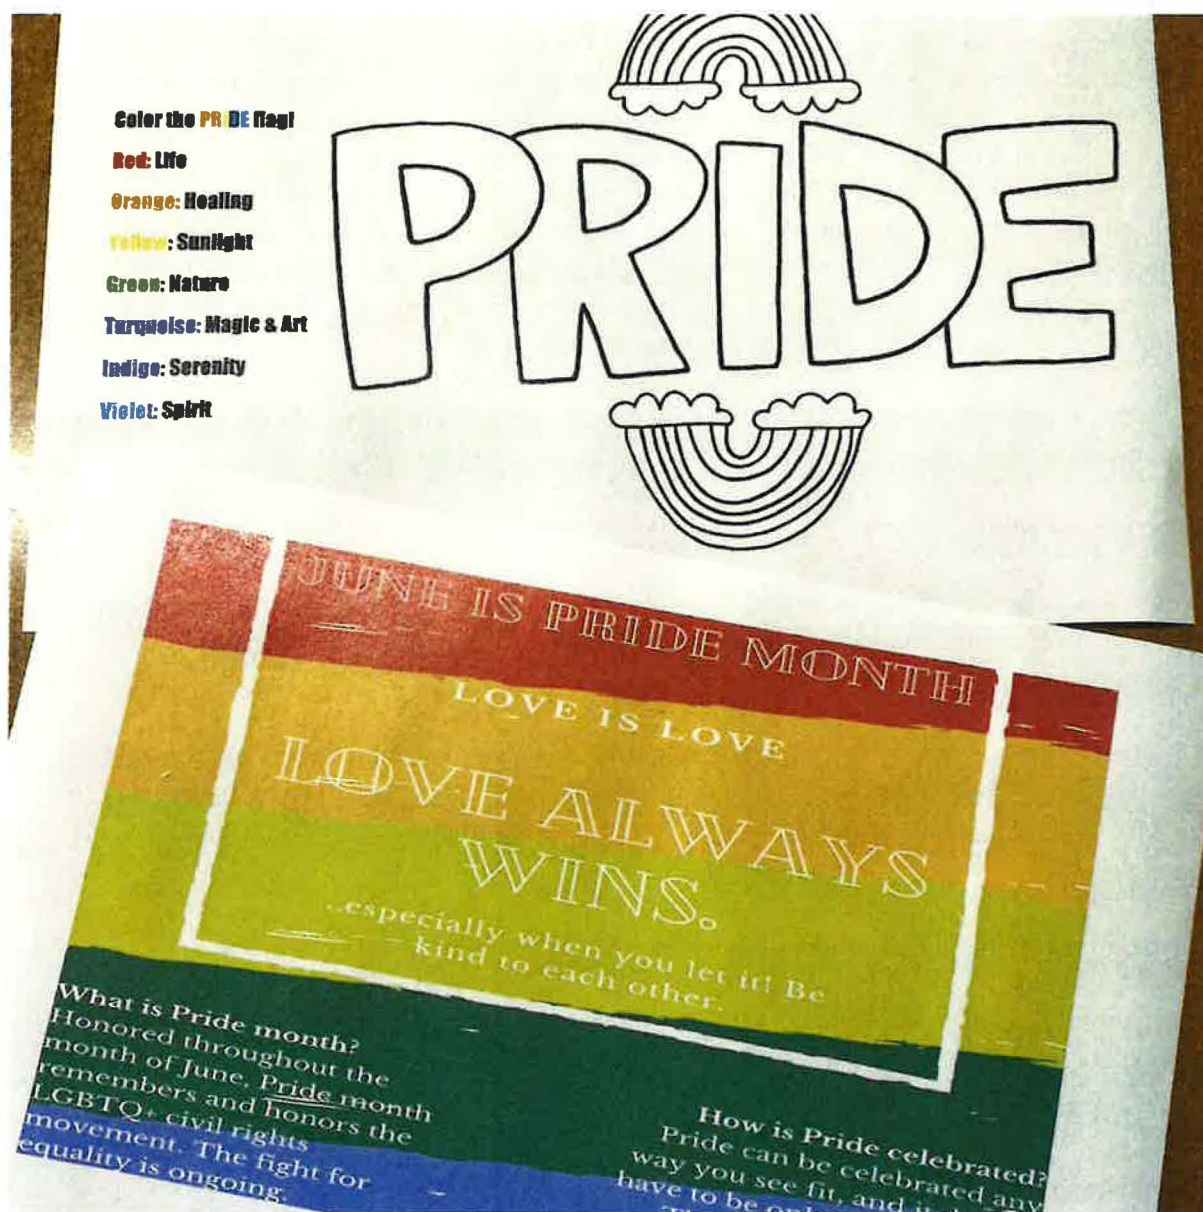 Color the PRIDE flag!
Red: Life
Orange: Healing
Yellow: Sunlight
Green: Nature
Turquoise: Magic & Art
Indigo: Serenity
Violet: Spirit
PRIDE
JUNE IS PRIDE MONTH
LOVE IS LOVE
LOVE ALWAYS
WINS.
...especially when you let it! Be
kind to each other.
What is Pride month?
Honored throughout the
month of June, Pride month
remembers and honors the
LGBTQ+ civil rights
movement. The fight for
equality is ongoing.
How is Pride celebrated?
Pride can be celebrated any
way you see fit, and
have to be